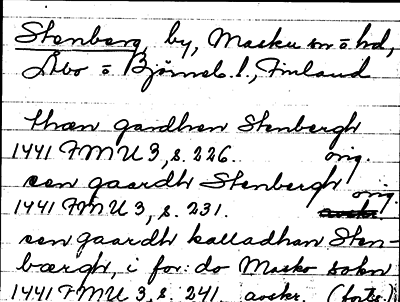 Stenberg, by, Masku sn o hd,
Åbo o Björneb. l., Finland
thæn gardhen Stenbergh
1441 FMU 3, s. 226. orig.
een gaardh Stenbergh
1441 FMU 3, s. 231. orig.
een gaardh kalladhan Sten-
bærgh, i for:do Masko sokn
1441 FMU 3, s. 241. avskr. (forts.)